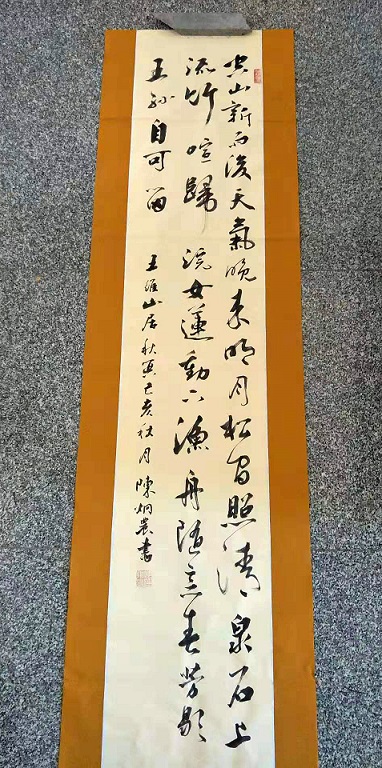 空山新雨後天氣晚來明月松間照清泉石上
流竹喧歸浣女蓮動下漁舟隨意春芳歇
王孫自可留
王維山居秋冥己亥秋月陳炯農書